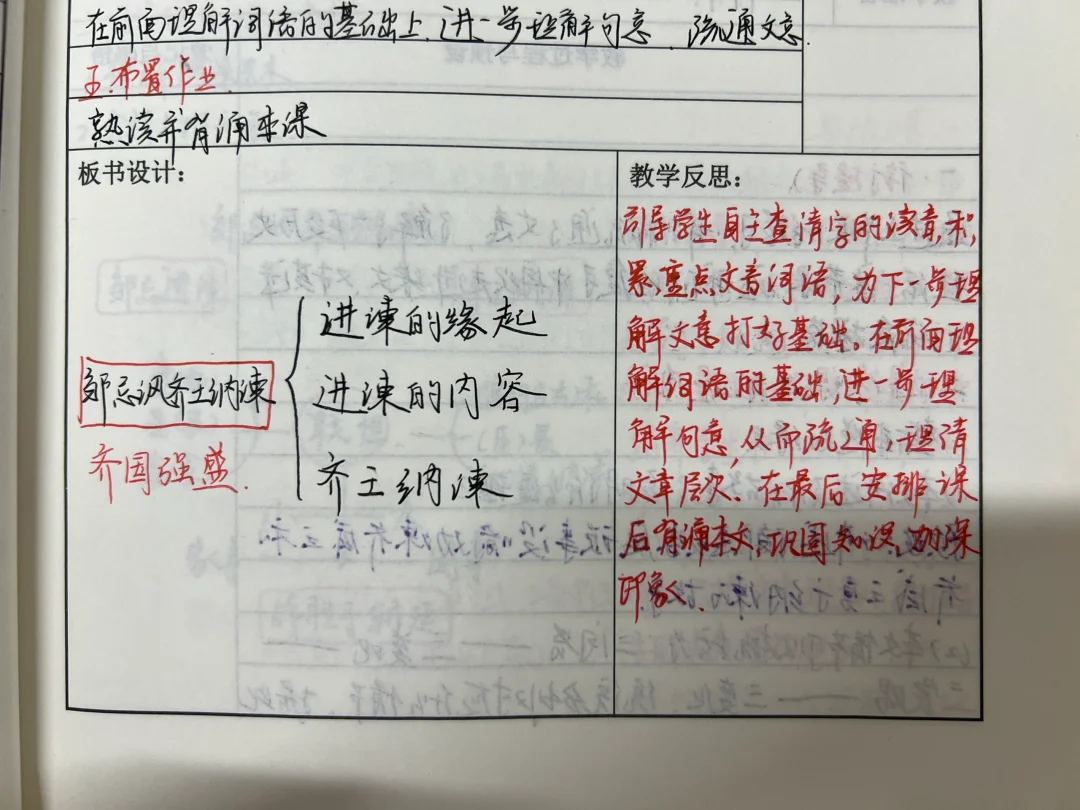 在前面理解词语的基础上,进一步理解句意,疏通文意.
五.布置作业.
熟读并背诵本课
板书设计：
邹忌讽齐王纳谏
齐国强盛.
进谏的缘起
进谏的内容
齐王纳谏
教学反思：
引导学生自主查清字的读音,积
累重点文言词语,为下一步理
解文意打好基础。在前面理
解词语的基础,进一步理
解句意,从而疏通,理清
文章层次.在最后安排课
后背诵本文,巩固知识,加深
印象.